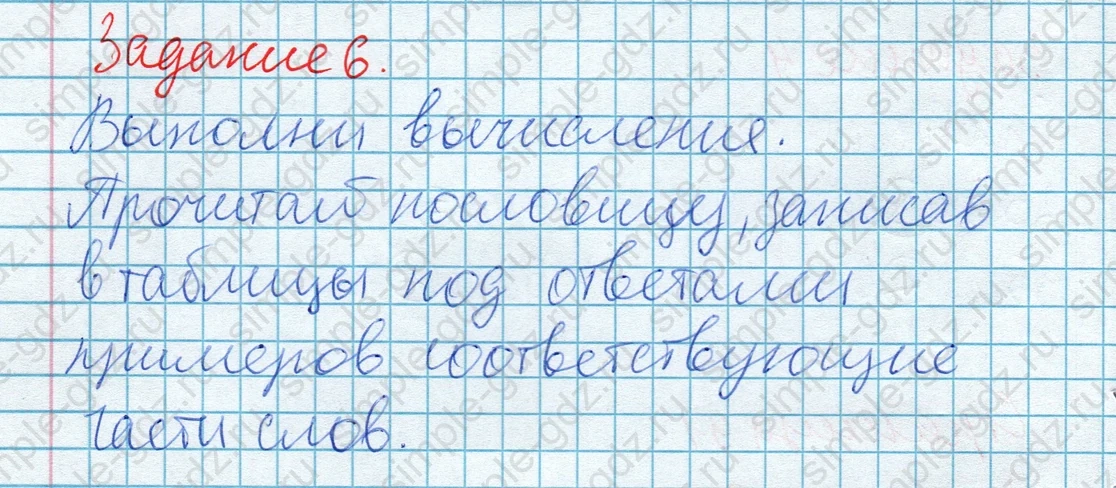 Задание 6.
Выполни вычисление.
Прочитай пословицу, записав
в таблицы под ответами
примеров соответствующие
части слов.